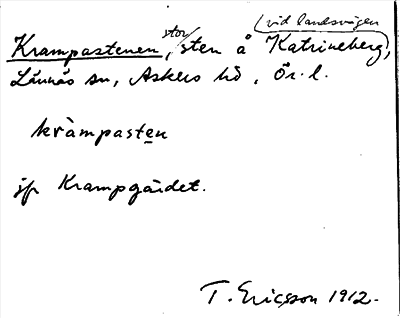 (vid landsvägen
Krampastenen, stor sten å Katrineberg,
Lännäs sn, Askers hd, Ör. l.
kràmpasten
jfr Krampgärdet.
T. Ericsson 1912.